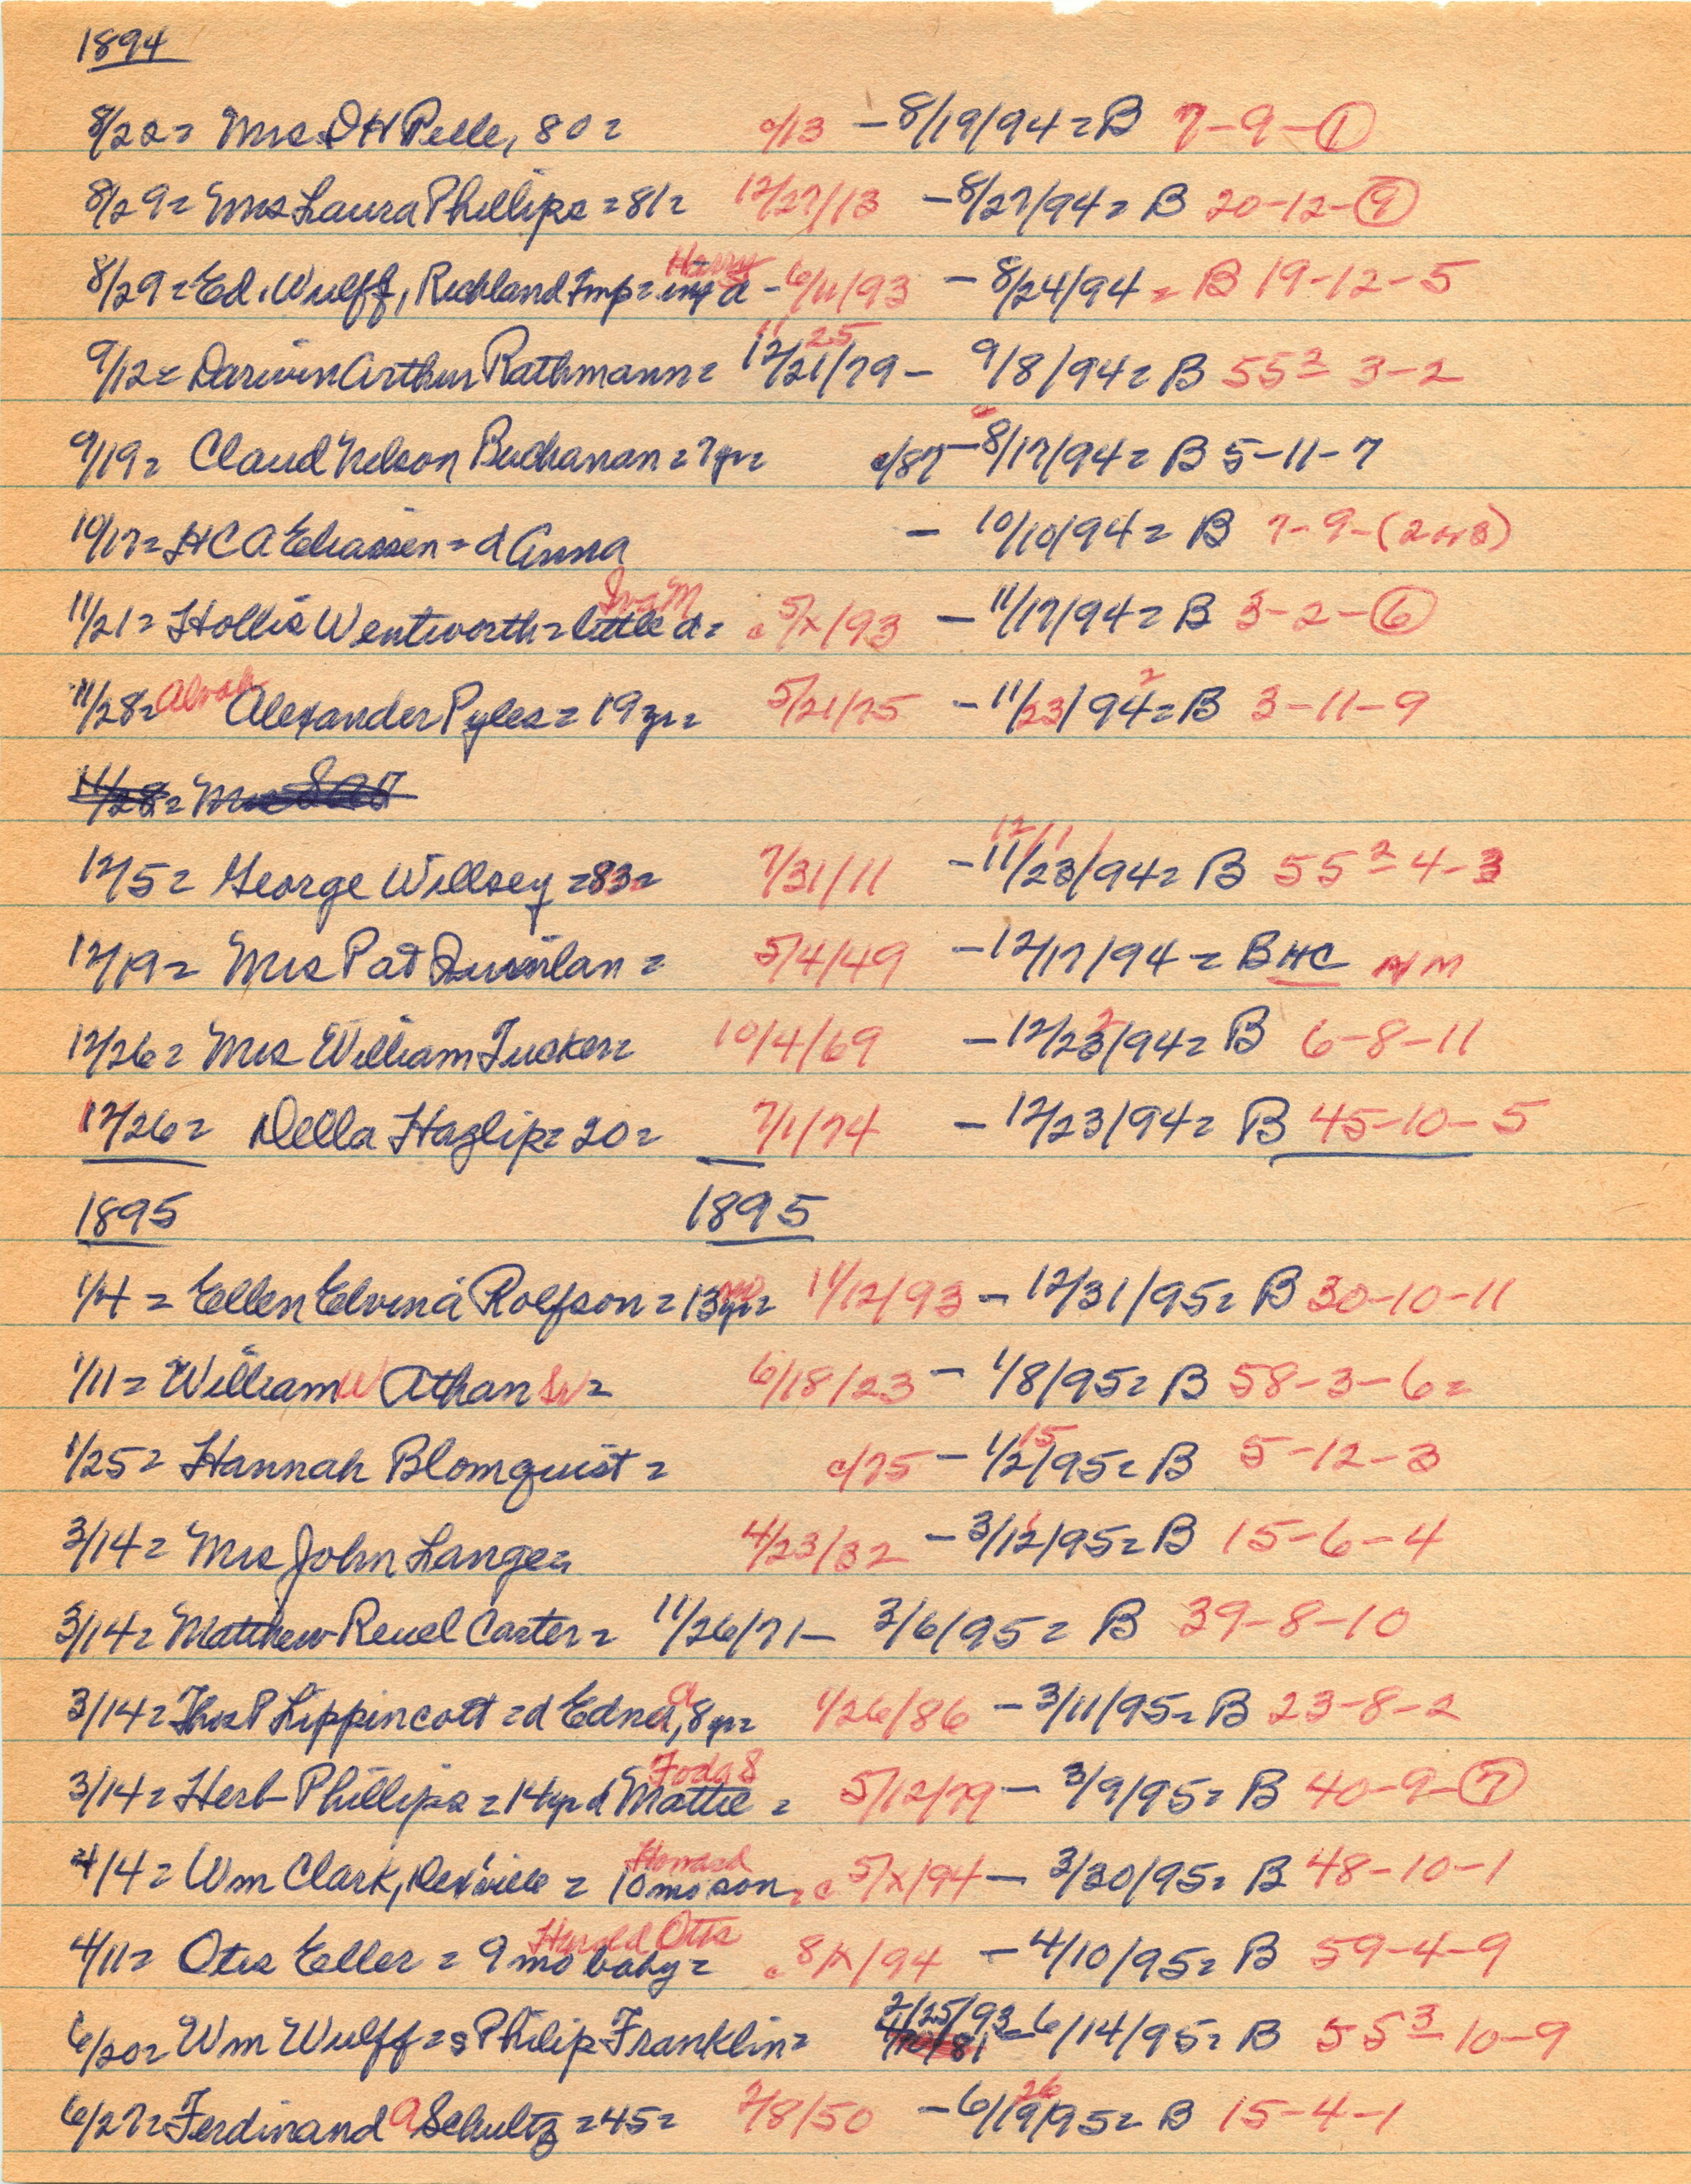 1894
8/22 = Mrs D H Pelle, 80 = c/13 - 8/19/94 = B 7-9-1
8/29 = Mrs Laura Phillips = 81 = 12/27/13 - 8/27/94 = B 20-12-9
Harry
8/29 = Ed. Wulff, Richland Twp = d - 6/11/93 - 8/24/94 = B 19-12-5
11 25
9/12 = Darwin Arthur Rathmann = 12/21/79 - 9/8/94 = B 55² 3-2
9/19 = Claud Nelson Buchanan = 7 yr = c/87 - 8/17/94 = B 5-11-7
10/17 = H C A Eliassen = d Anna - 10/10/94 = B 7-9-(2 or 3)
Iva M
11/21 = Hollis Wentworth = little d = c 5/x/93 - 11/17/94 = B 3-2-6
11/28 = Alvah Alexander Pyles = 19 yr = 5/21/75 - 11/23/94 = B 3-11-9
2
11/28 = Mrs
12/1
12/5 = George Willsey = 83 = 7/31/11 - 11/23/94 = B 55² 4-3
12/19 = Mrs Pat Quinlan = 5/4/49 - 12/17/94 = B HC N M
12/26 = Mrs William Tucker = 10/4/69 - 12/23/94 = B 6-8-11
2
12/26 = Della Hazlip = 20 = 7/1/74 - 12/23/94 = B 45-10-5
1895 1895
mo
1/4 = Ellen Elvina Rolfson = 13 yr = 11/12/93 - 12/31/95 = B 30-10-11
1/11 = William W Athan Sr = 6/18/23 - 1/8/95 = B 58-3-6 =
15
1/25 = Hannah Blomquist = c/75 - 1/2/95 = B 5-12-3
3/14 = Mrs John Lange = 4/23/32 - 3/12/95 = B 15-6-4
3/14 = Matthew Reuel Carter = 11/26/71 - 3/6/95 = B 39-8-10
a
3/14 = Thos P Lippincott = d Edna, 8 yr = 1/26/86 - 3/11/95 = B 23-8-2
S
3/14 = Herb Phillips = 14 yr d Mattie = 5/12/79 - 3/9/95 = B 40-9-7
Howard
4/4 = Wm Clark, Dexville = 10 mo son = c 5/x/94 - 3/30/95 = B 48-10-1
Harold Otis
4/11 = Otis Eller = 9 mo baby = c 8/x/94 - 4/10/95 = B 59-4-9
2/25/93
6/20 = Wm Wulff = s Philip Franklin = - 6/14/95 = B 55³ 10-9
26
6/27 = Ferdinand A Schultz = 45 = 2/8/50 - 6/19/95 = B 15-4-1